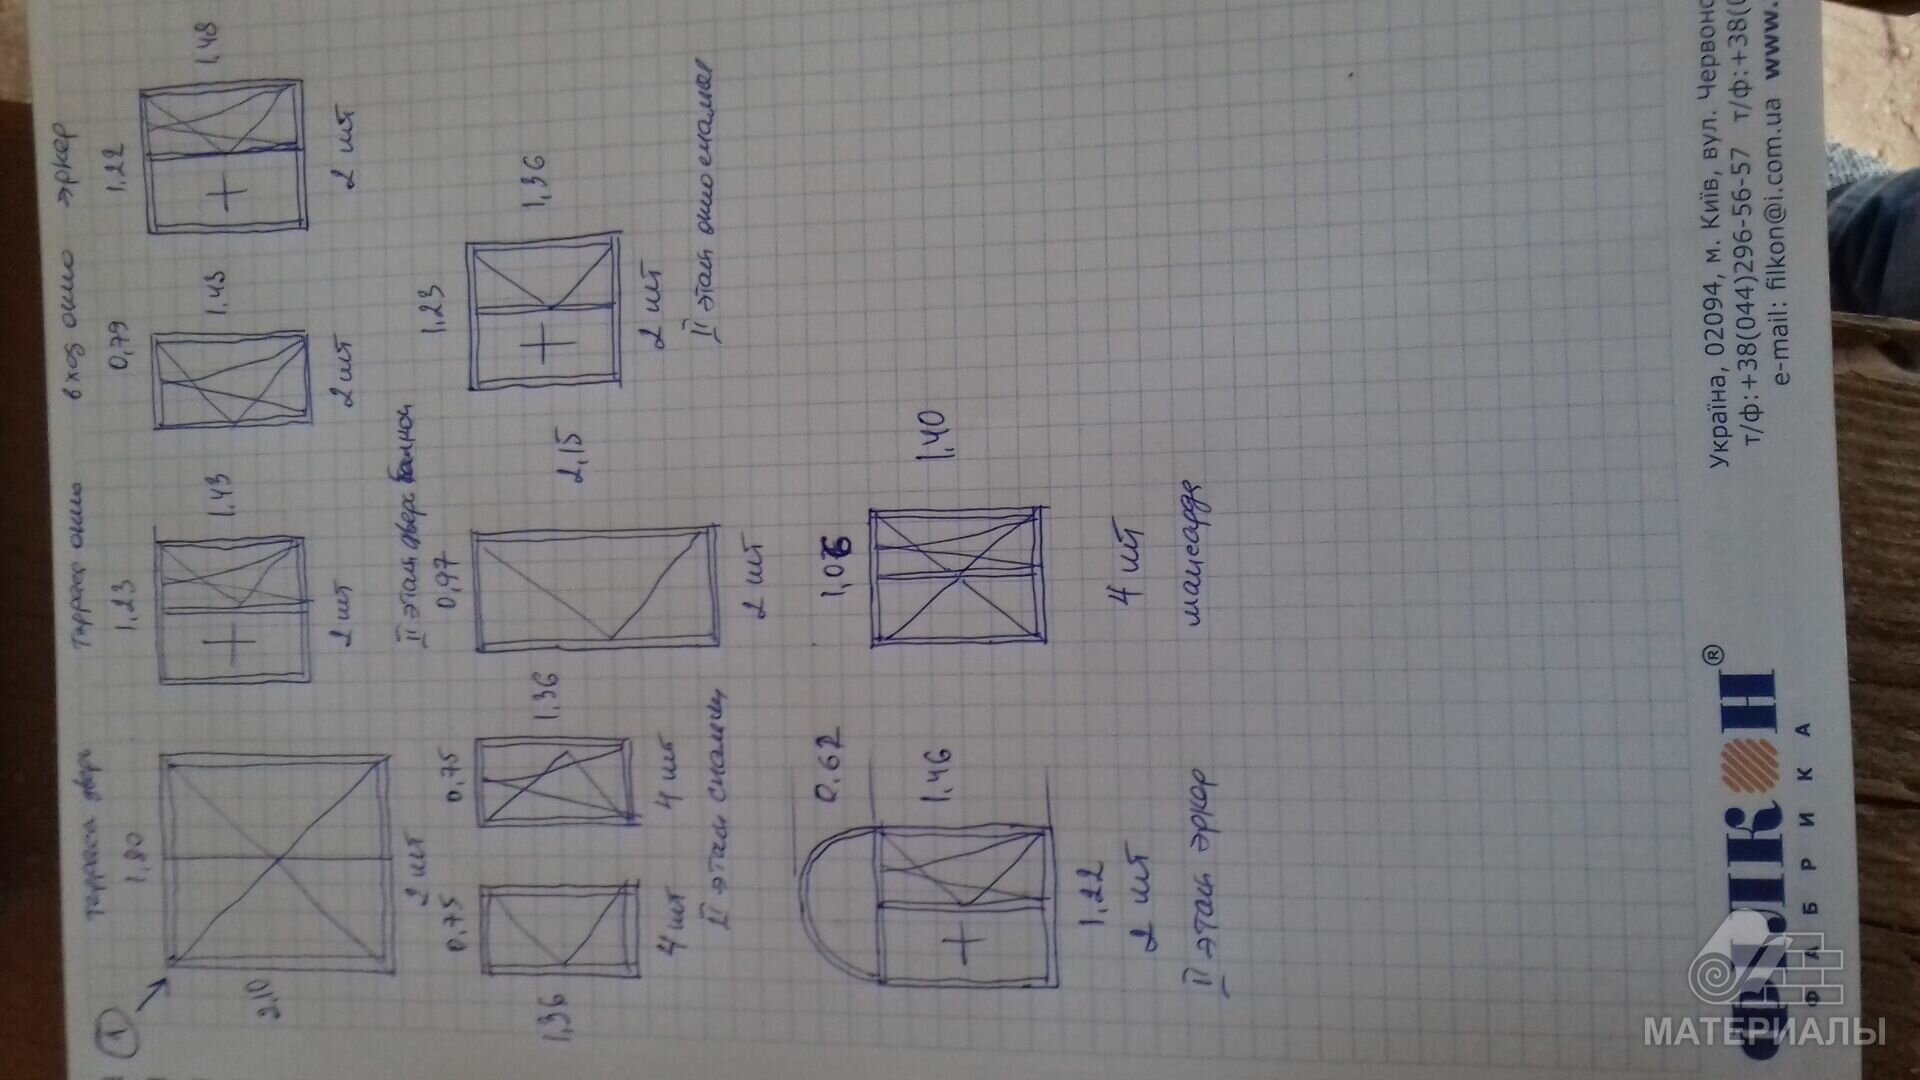 1
терраса дверь
1,80
2,10
2 шт
террас окно
1,23
1.43
2 шт
вход окно
0,79
1.43
2 шт
эркер
1,22
1,48
2 шт
0,75
1,36
4 шт
0,75
1,36
4 шт
II этаж
II этаж дверь
0,97
2,15
2 шт
1,23
1,36
2 шт
II этаж окно
0.62
1,46
1,22
2 шт
II этаж эркер
1,06
1,40
4 шт
мансарда
ФІЛКОН®
ФАБРИКА
Україна, 02094, м. Київ, вул. Червоно
т/ф:+38(044)296-56-57 т/ф:+38(0
e-mail: filkon@i.com.ua www.
МАТЕРИАЛЫ